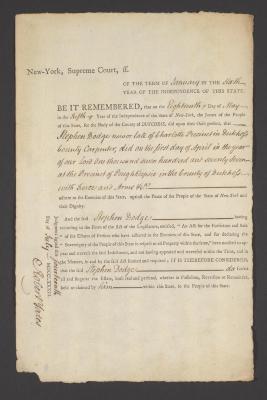 New-York, Supreme Court, ss.
OF THE TERM OF January IN THE Sixth
YEAR OF THE INDEPENDENCE OF THIS STATE.
BE IT REMEMBERED, that on the Eighteenth Day of May
in the Fifth Year of the Independence of the State of New-York, the Jurors of the People
of this State, for the Body of the County of DUTCHESS, did upon their Oath present, that
Stephen Dodge late of Charlotte Precinct in Dutchess
County Carpenter, did on the first day of April in the year
of our Lord One thousand seven hundred and seventy Seven
at the Precinct of Poughkepsie in the County of Dutchess
with force and Arms &c.
adhere to the Enemies of this State, against the Peace of the People of the State of New-York and
their Dignity:
And the said Stephen Dodge having
according to the Form of the Act of the Legislature, entitled, "An Act for the Forfeiture and Sale
of the Estates of Persons who have adhered to the Enemies of this State, and for declaring the
Sovereignty of the People of this State in respect to all Property within the same," been notified to appear
and traverse the said Indictment, and not having appeared and traversed within the Time, and in
the Manner, in and by the said Act limited and required; IT IS THEREFORE CONSIDERED,
that the said Stephen Dodge do forfeit
all and singular the Estate, both real and personal, whether in Possession, Reversion or Remainder,
held or claimed by him within this State, to the People of this State.
Day of July